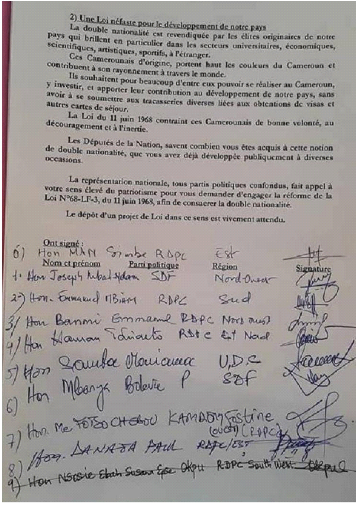 2) Une Loi néfaste pour le développement de notre pays
La double nationalité est revendiquée par les élites originaires de notre
pays qui brillent en particulier dans les secteurs universitaires, économiques,
scientifiques, artistiques, sportifs, à l'étranger.
Ces Camerounais d'origine, portent haut les couleurs du Cameroun et
contribuent à son rayonnement à travers le monde.
Ils souhaitent pour beaucoup d'entre eux pouvoir se réaliser au Cameroun,
y investir, et apporter leur contribution au développement de notre pays, sans
avoir à se soumettre aux tracasseries diverses liées aux obtentions de visas et
autres cartes de séjour.
La Loi du 11 juin 1968 contraint ces Camerounais de bonne volonté, au
découragement et à l'inertie.
Les Députés de la Nation, savent combien vous êtes acquis à cette notion
de double nationalité, que vous avez déjà développée publiquement à diverses
occasions.
La représentation nationale, tous partis politiques confondus, fait appel à
votre sens élevé du patriotisme pour vous demander d'engager la réforme de la
Loi N°68-LF-3, du 11 juin 1968, afin de consacrer la double nationalité.
Le dépôt d'un projet de Loi dans ce sens est vivement attendu.
Ont signé :
Hon RDPC Est
Nom et prénom Parti politique Région Signature
Hon Joseph SDF Nord-Ouest
2) Hon. Emmanuel RDPC Sud
3) Hon Banmi Emmanuel RDPC Nord ouest
4) Hon RDPC Ext Nord
5) Hon U.D.C
6) Hon Mbanga SDF
7) Hon Me KAMDEM
(OUEST) (RDPC)
8) Hon. PAUL RDPC/EST
9) Hon Susana RDPC South West